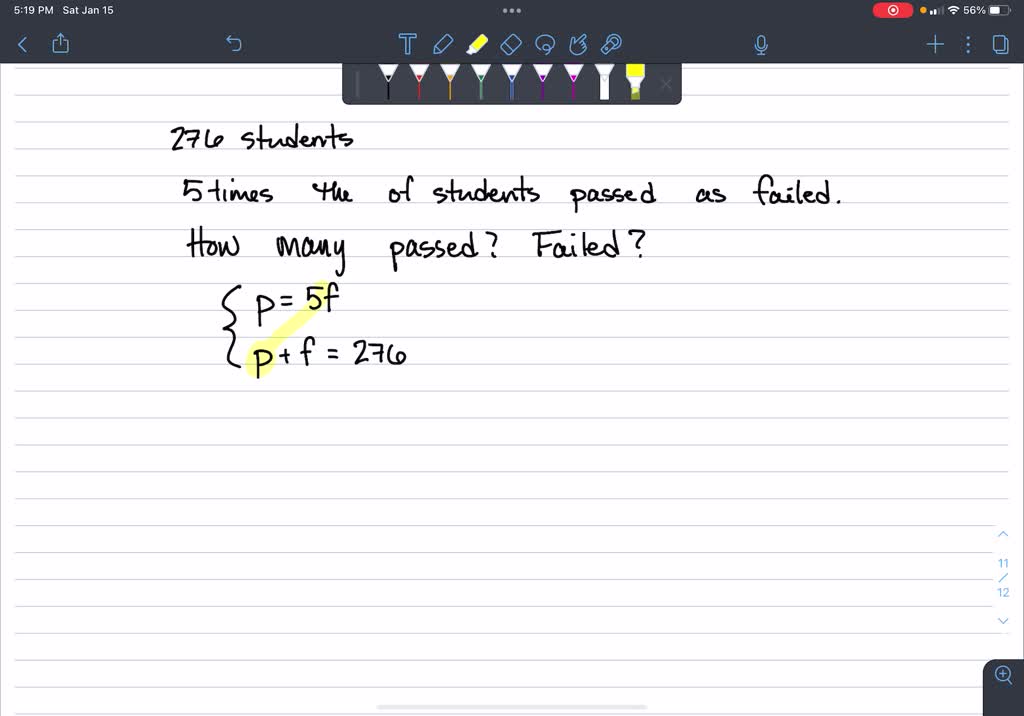 5:19 PM Sat Jan 15
56%
T
276 students
5 times the of students passed as failed.
How many passed? Failed?
p = 5f
p + f = 276
11
/
12